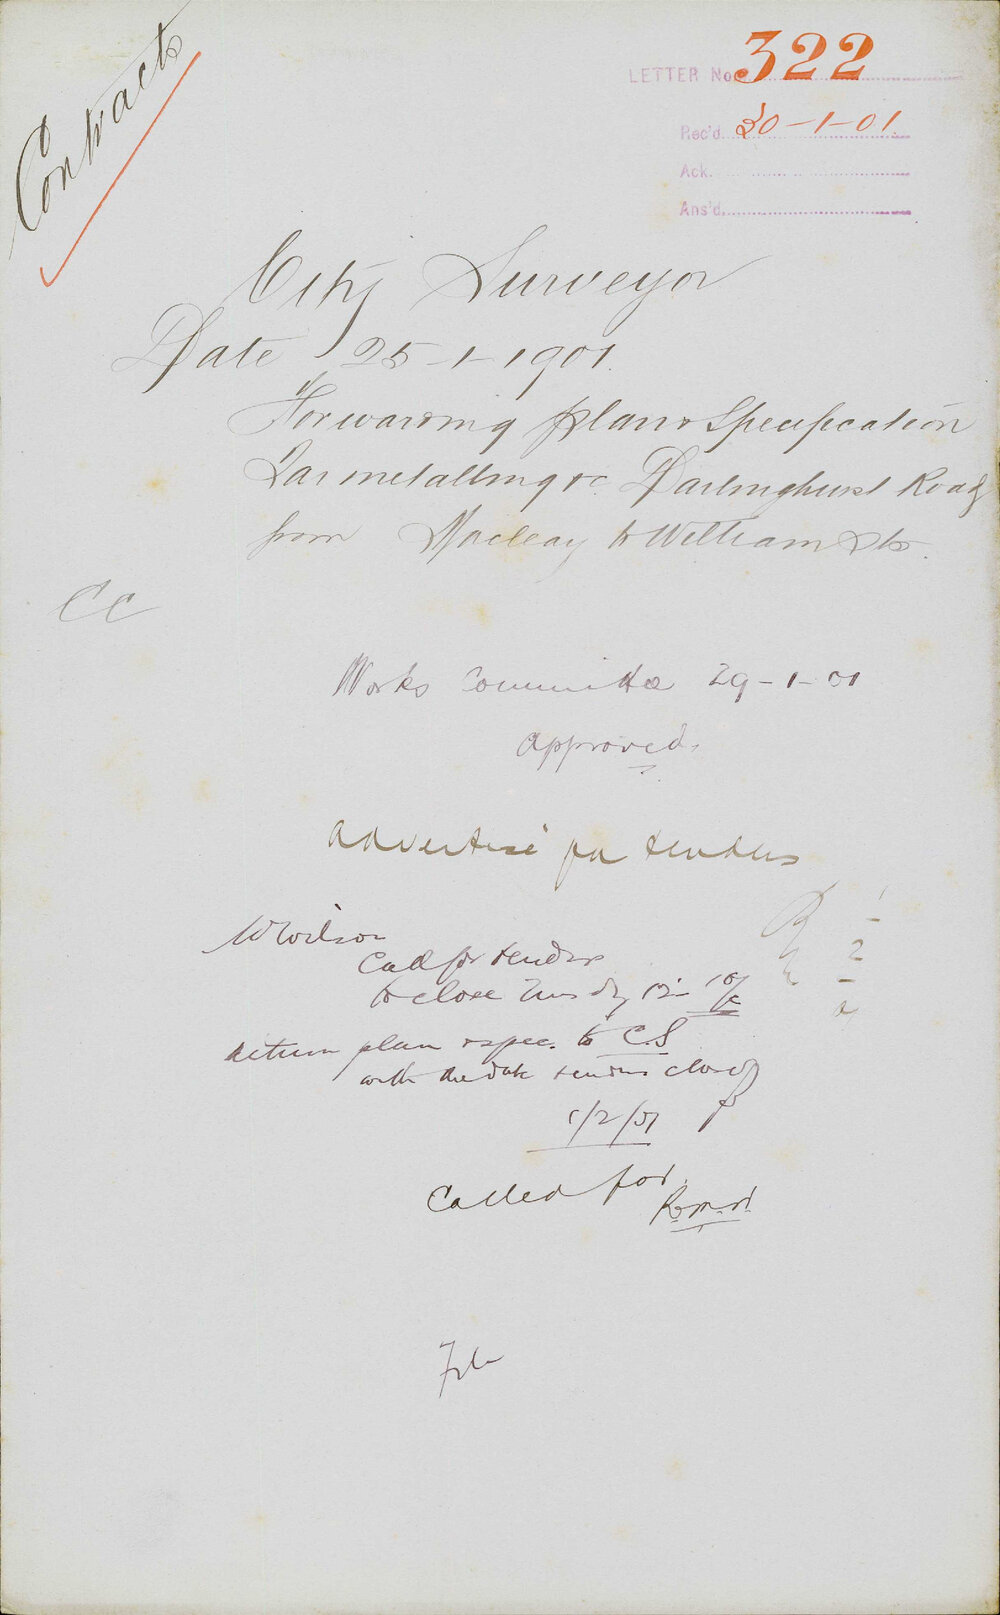 Contracts
LETTER No. 322
Rec'd. 30-1-01
Ack.
Ans'd.
City Surveyor
Date 25-1-1901.
Forwarding plan & Specification
Tarmetalling &c. Darlinghurst Road
from Macleay to William Sts.
CC
Works Committee 29-1-01
Approved.
Advertise for tenders
1-2-0
W Wilson
Call for tenders
to close Tuesday 12-
return plan & spec. to C.S
with the date tenders close
1/2/01
Called for
File